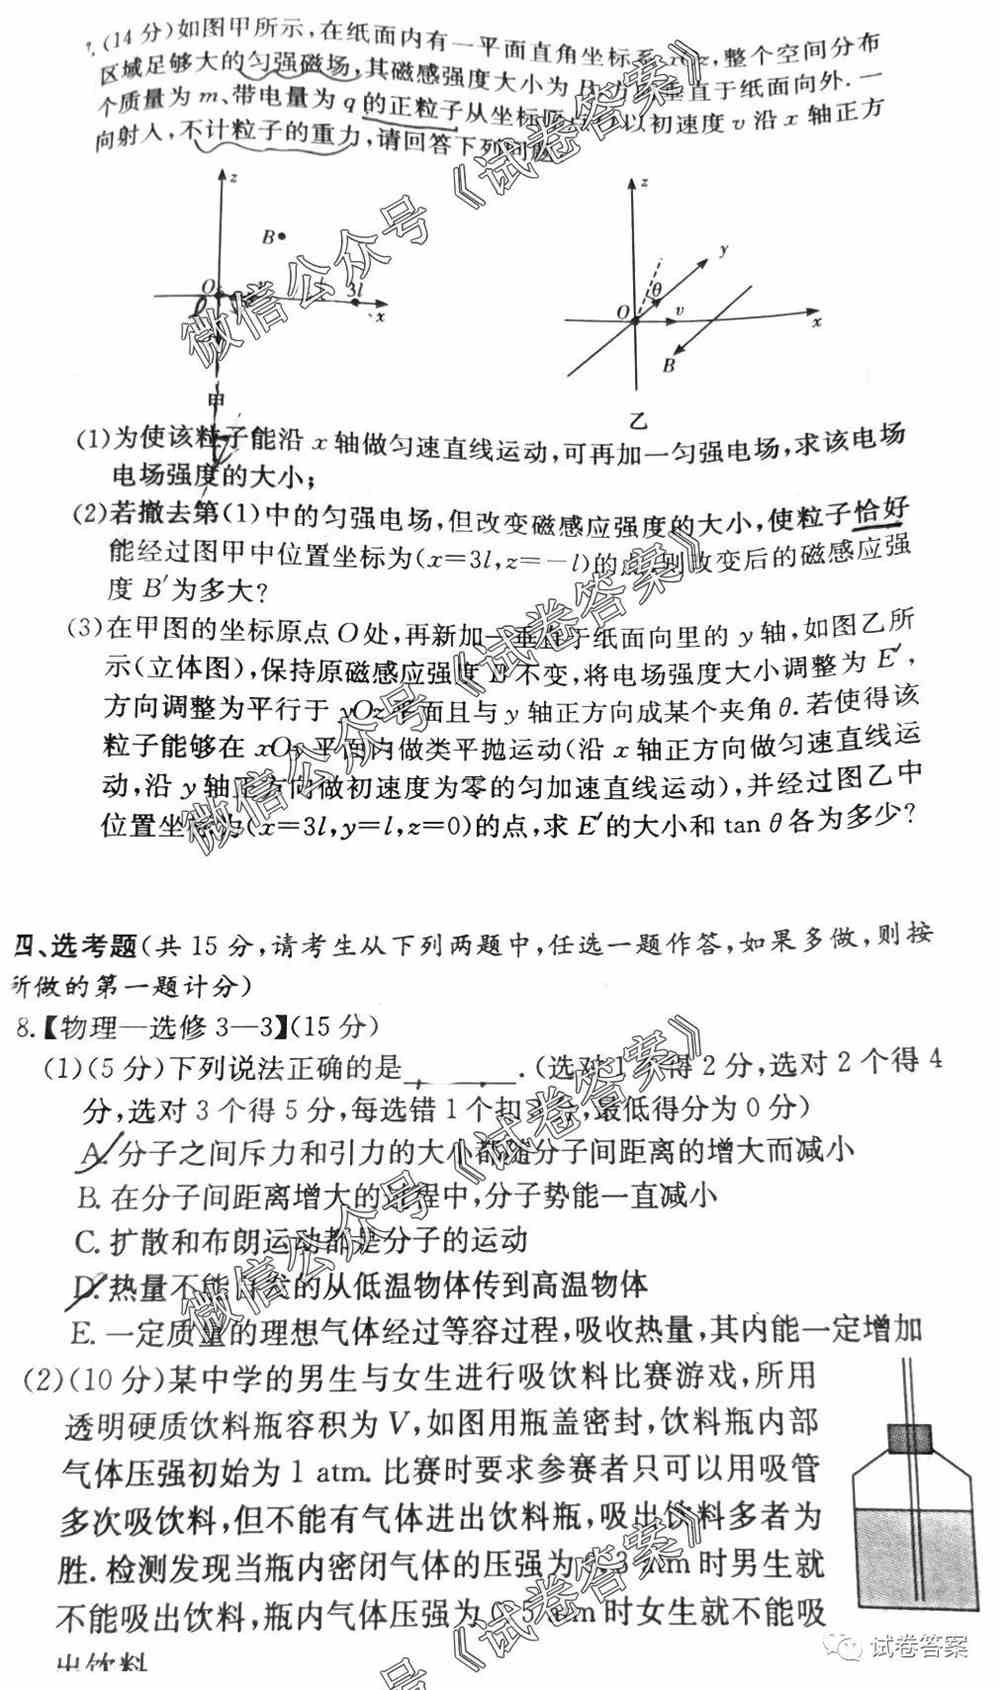 (14分)如图甲所示,在纸面内有一平面直角坐标系 ,整个空间分布
区域足够大的匀强磁场,其磁感强度大小为 B, 垂直于纸面向外.一
个质量为 m、带电量为 q 的正粒子从坐标原点 以初速度 v 沿 x 轴正方
向射入,不计粒子的重力,请回答下列问题
z
B
O
3l
x
甲
z
y
θ
O
v
x
B
乙
(1)为使该粒子能沿 x 轴做匀速直线运动,可再加一匀强电场,求该电场
电场强度的大小;
(2)若撤去第(1)中的匀强电场,但改变磁感应强度的大小,使粒子恰好
能经过图甲中位置坐标为(x=3l,z=-l)的点,则改变后的磁感应强
度 B′为多大?
(3)在甲图的坐标原点 O 处,再新加一垂直于纸面向里的 y 轴,如图乙所
示(立体图),保持原磁感应强度 B 不变,将电场强度大小调整为 E′,
方向调整为平行于 yOz 平面且与 y 轴正方向成某个夹角 θ.若使得该
粒子能够在 xOy 平面内做类平抛运动(沿 x 轴正方向做匀速直线运
动,沿 y 轴正方向做初速度为零的匀加速直线运动),并经过图乙中
位置坐标为(x=3l,y=l,z=0)的点,求 E′的大小和 tan θ 各为多少?
四、选考题(共 15 分,请考生从下列两题中,任选一题作答,如果多做,则按
所做的第一题计分)
8.【物理—选修 3—3】(15 分)
(1)(5 分)下列说法正确的是______.(选对 1 个得 2 分,选对 2 个得 4
分,选对 3 个得 5 分,每选错 1 个扣 分,最低得分为 0 分)
A.分子之间斥力和引力的大小都随分子间距离的增大而减小
B.在分子间距离增大的过程中,分子势能一直减小
C.扩散和布朗运动都是分子的运动
D.热量不能自发的从低温物体传到高温物体
E.一定质量的理想气体经过等容过程,吸收热量,其内能一定增加
(2)(10 分)某中学的男生与女生进行吸饮料比赛游戏,所用
透明硬质饮料瓶容积为 V,如图用瓶盖密封,饮料瓶内部
气体压强初始为 1 atm.比赛时要求参赛者只可以用吸管
多次吸饮料,但不能有气体进出饮料瓶,吸出饮料多者为
胜.检测发现当瓶内密闭气体的压强为 atm 时男生就
不能吸出饮料,瓶内气体压强为 0.5 atm 时女生就不能吸
出饮料
微信公众号《试卷答案》
微信公众号《试卷答案》
微信公众号《试卷答案》
微信公众号《试卷答案》
试卷答案